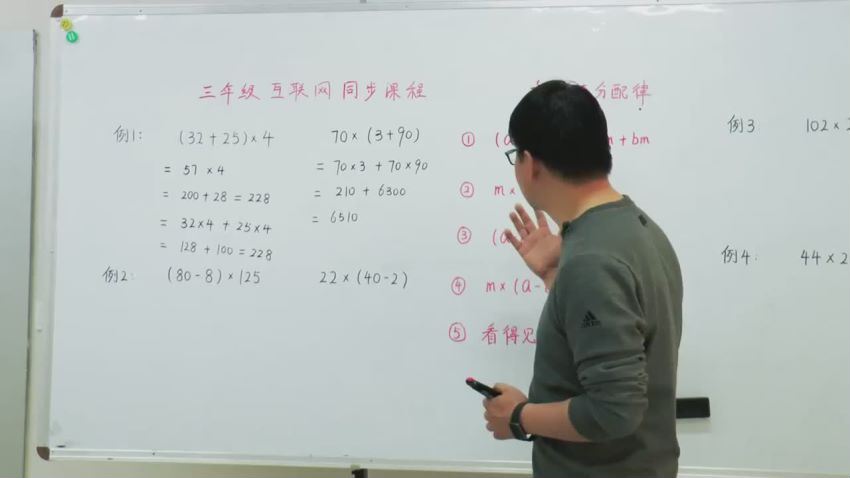 三年级 互联网 同步课程
分配律
例1:
(32+25)×4
= 57 ×4
= 200+28 = 228
= 32×4 + 25×4
= 128+100=228
70×(3+90)
= 70×3 + 70×90
= 210 + 6300
= 6510
例2:
(80-8)×125
22×(40-2)
① (a
+ bm
② m×
③ (a
④ m×(a-
⑤ 看得见
例3
102×2
例4:
44×2
adidas